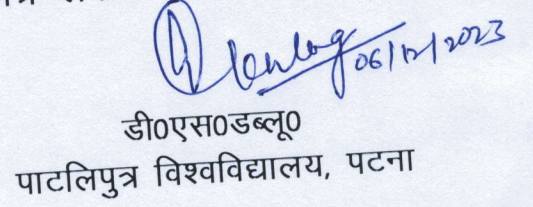 06/12/2023
डी0एस0डब्लू0
पाटलिपुत्र विश्वविद्यालय, पटना